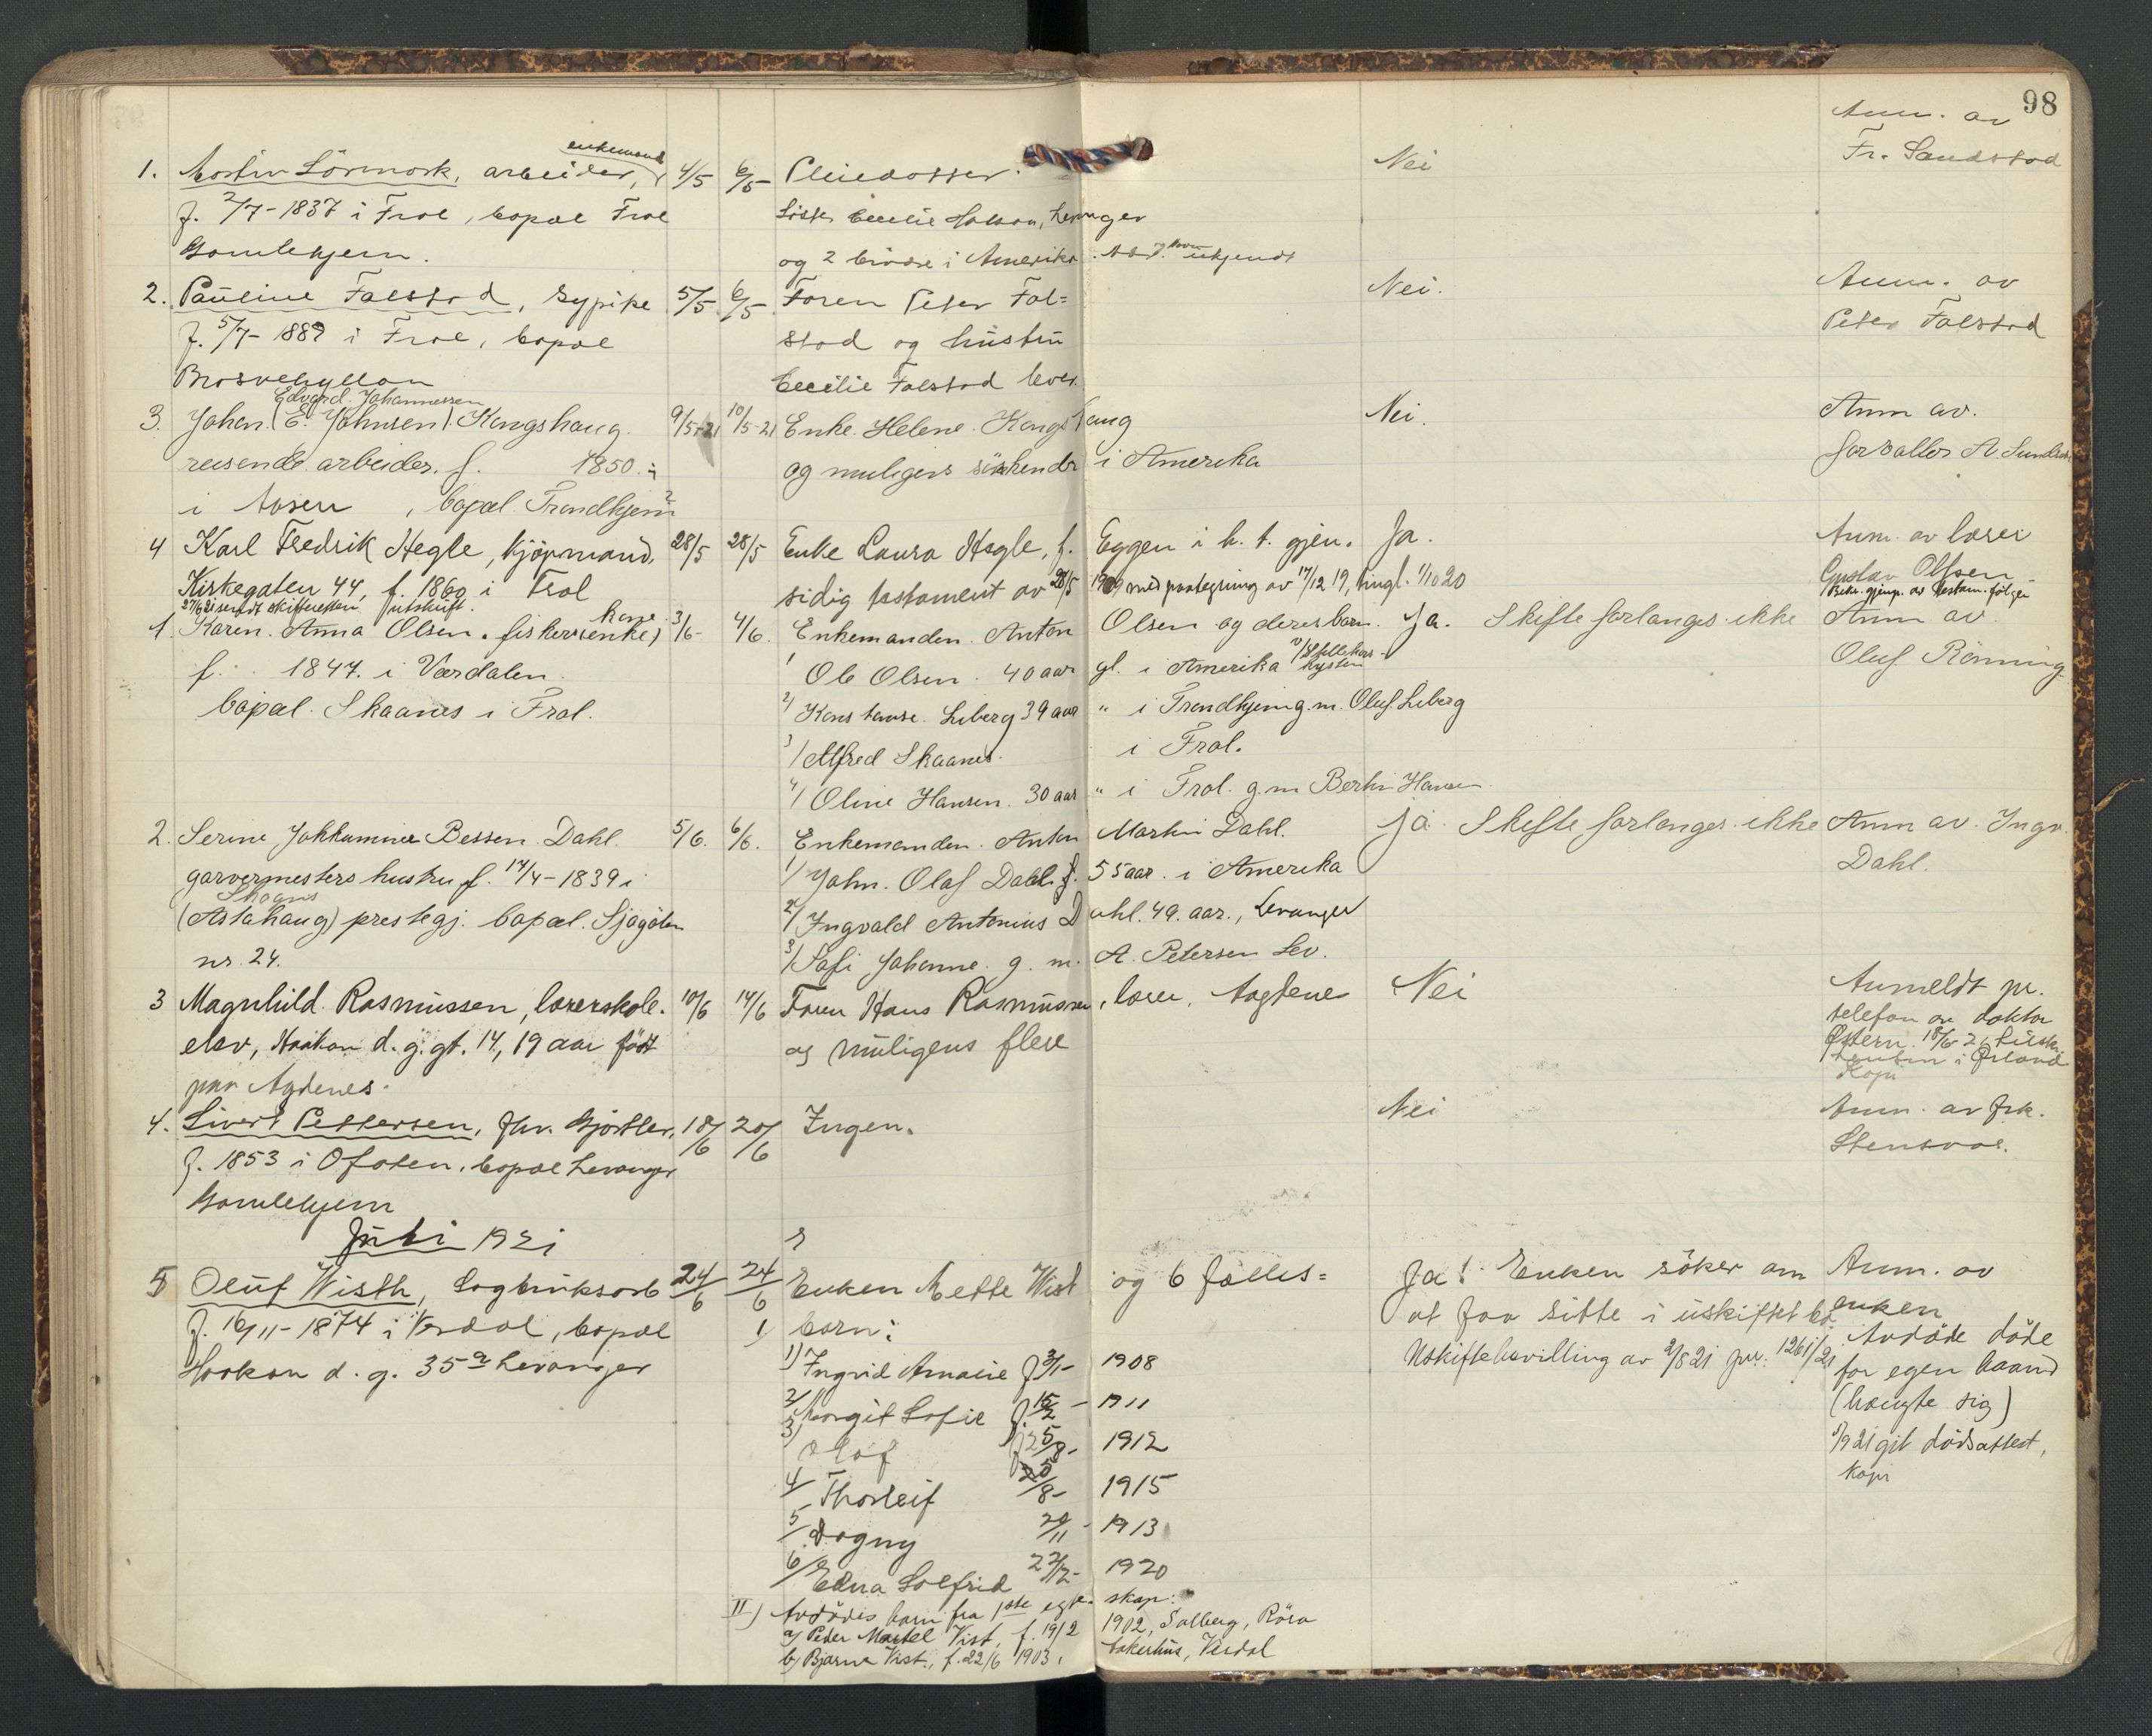 98
1. Mostin Lörmork, arbeider, enkemand 4/5 6/5 Pleiedotter. Nei Anm. av
Fr. Sandstad
f. 2/7-1837 i Frol, bopæl Frol Söster Cecilie Holsan, Levanger
Gamlehjem. og 2 brödre i Amerika. utkjendt
2. Pauline Falstad, sypike 5/5 6/5 Faren Peter Fal= Nei. Anm. av
f. 5/7-1889 i Frol, bopæl stad og hustru Peter Falstad
Brusvehyllan Cecilie Falstad lever.
Edvard Johannessen
3. Johan (E. Johnsen) Kongshaug. 9/5-21 10/5-21 Enke. Helene. Kongshaug Nei. Anm av.
reisende arbeider. f. 1850. og muligens söskende i Amerika forvalter A.
i Aasen, bopæl. Trondhjem?
4 Karl Fredrik Hegle, kjöpmand, 28/5 28/5 Enke Laura Hegle, f. Eggen i h. t. gjen- Ja. Anm. av lærer
Kirkegaten 44, f. 1860 i Frol sidig testament av 28/5 1909 med paategning av 17/12 19, tingl. 1/10 20 Gustav Olsen
27/6 21 sendt skifteretten utskrift. Bekr. gjenp. av testam. følger
1 Karen. Anna Olsen. fiskerienke, kone 3/6- 4/6. Enkemanden. Anton Olsen og deres barn. Ja. Skifte forlanges ikke Anm av
f. 1847. i Værdalen. 1/ Ole Olsen. 40 aar gl. i Amerika Oluf Rönning
bopæl. Skaanes i Frol. 2/ Konstanse. Liberg 39 aar " i Trondhjem g. m. Oluf Liberg
3/ Alfred Skaanes. i Frol.
4/ Oline Hansen. 30 aar " i Frol. g. m Bertin Hansen.
2. Serine Jakkumine Bessen Dahl. 5/6. 6/6. Enkemanden. Anton Martin Dahl. Ja. Skifte forlanges ikke Anm av. Ingv.
garvermesters hustru f. 14/4-1839 i 1/ John. Olaf Dahl f. 55 aar. i Amerika Dahl.
Skogns
(Alstahaug) prestegj. bopæl. Sjøgaten 2/ Ingvald Antonius Dahl. 49. aar., Levanger
nr. 24. 3/ Sofi Johanne. g. m. A. Petersen Lev.
3 Magnhild Rasmussen, lærerskole- 10/6 14/6 Faren Hans Rasmussen, lærer, Aagdenes Nei Anmeldt pr.
elev, Haakon d. g. gt. 14, 19 aar født og muligens flere telefon av doktor
paa Agdenes. Østern. 18/6 21
i Ørland
Kopi
4. Sivert Pettersen, fhv. Gjørtler, 18/6 20/6 Ingen. Nei Anm. av frk.
f. 1853 i Ofoten, bopæl Levanger Stensvoe.
Gamlehjem
Juli 1921
5 Oluf Wisth, Sagbruksarb 24/6 24/6 Enken Mette Wist og 6 fælles= Ja! Enken söker om Anm. av
f. 16/11-1874 i Verdal, bopæl 1/ barn: at faa sitte i uskiftet bo. enken
Haakon d. g. 35a Levanger 1) Ingrid Amalie f 3/1- 1908 Uskiftebevilling av 2/8 21 jnr. 1261/21 Avdöde döde
2/ Margit Sofie f. 15/2 - 1911 for egen haand
3) Olaf f 25/8- 1912 (hængte sig)
4/ Thorleif 25/8- 1915 1/9 21 git dødsattest,
5/ Dagny 29/11- 1913 kopi
6/ Edna Solfrid 22/12- 1920
II) Avdödes barn fra 1ste egte- skap:
a) Peder Martel Vist, f. 19/2 1902, Salberg, Röra
b) Bjarne Vist, f. 22/6 1903, bakerhus, Verdal